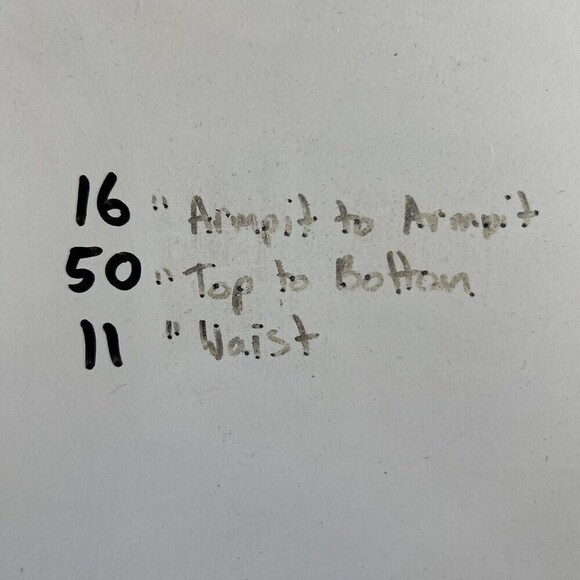 16 " Armpit to Armpit
50 " Top to Bottom
11 " Waist